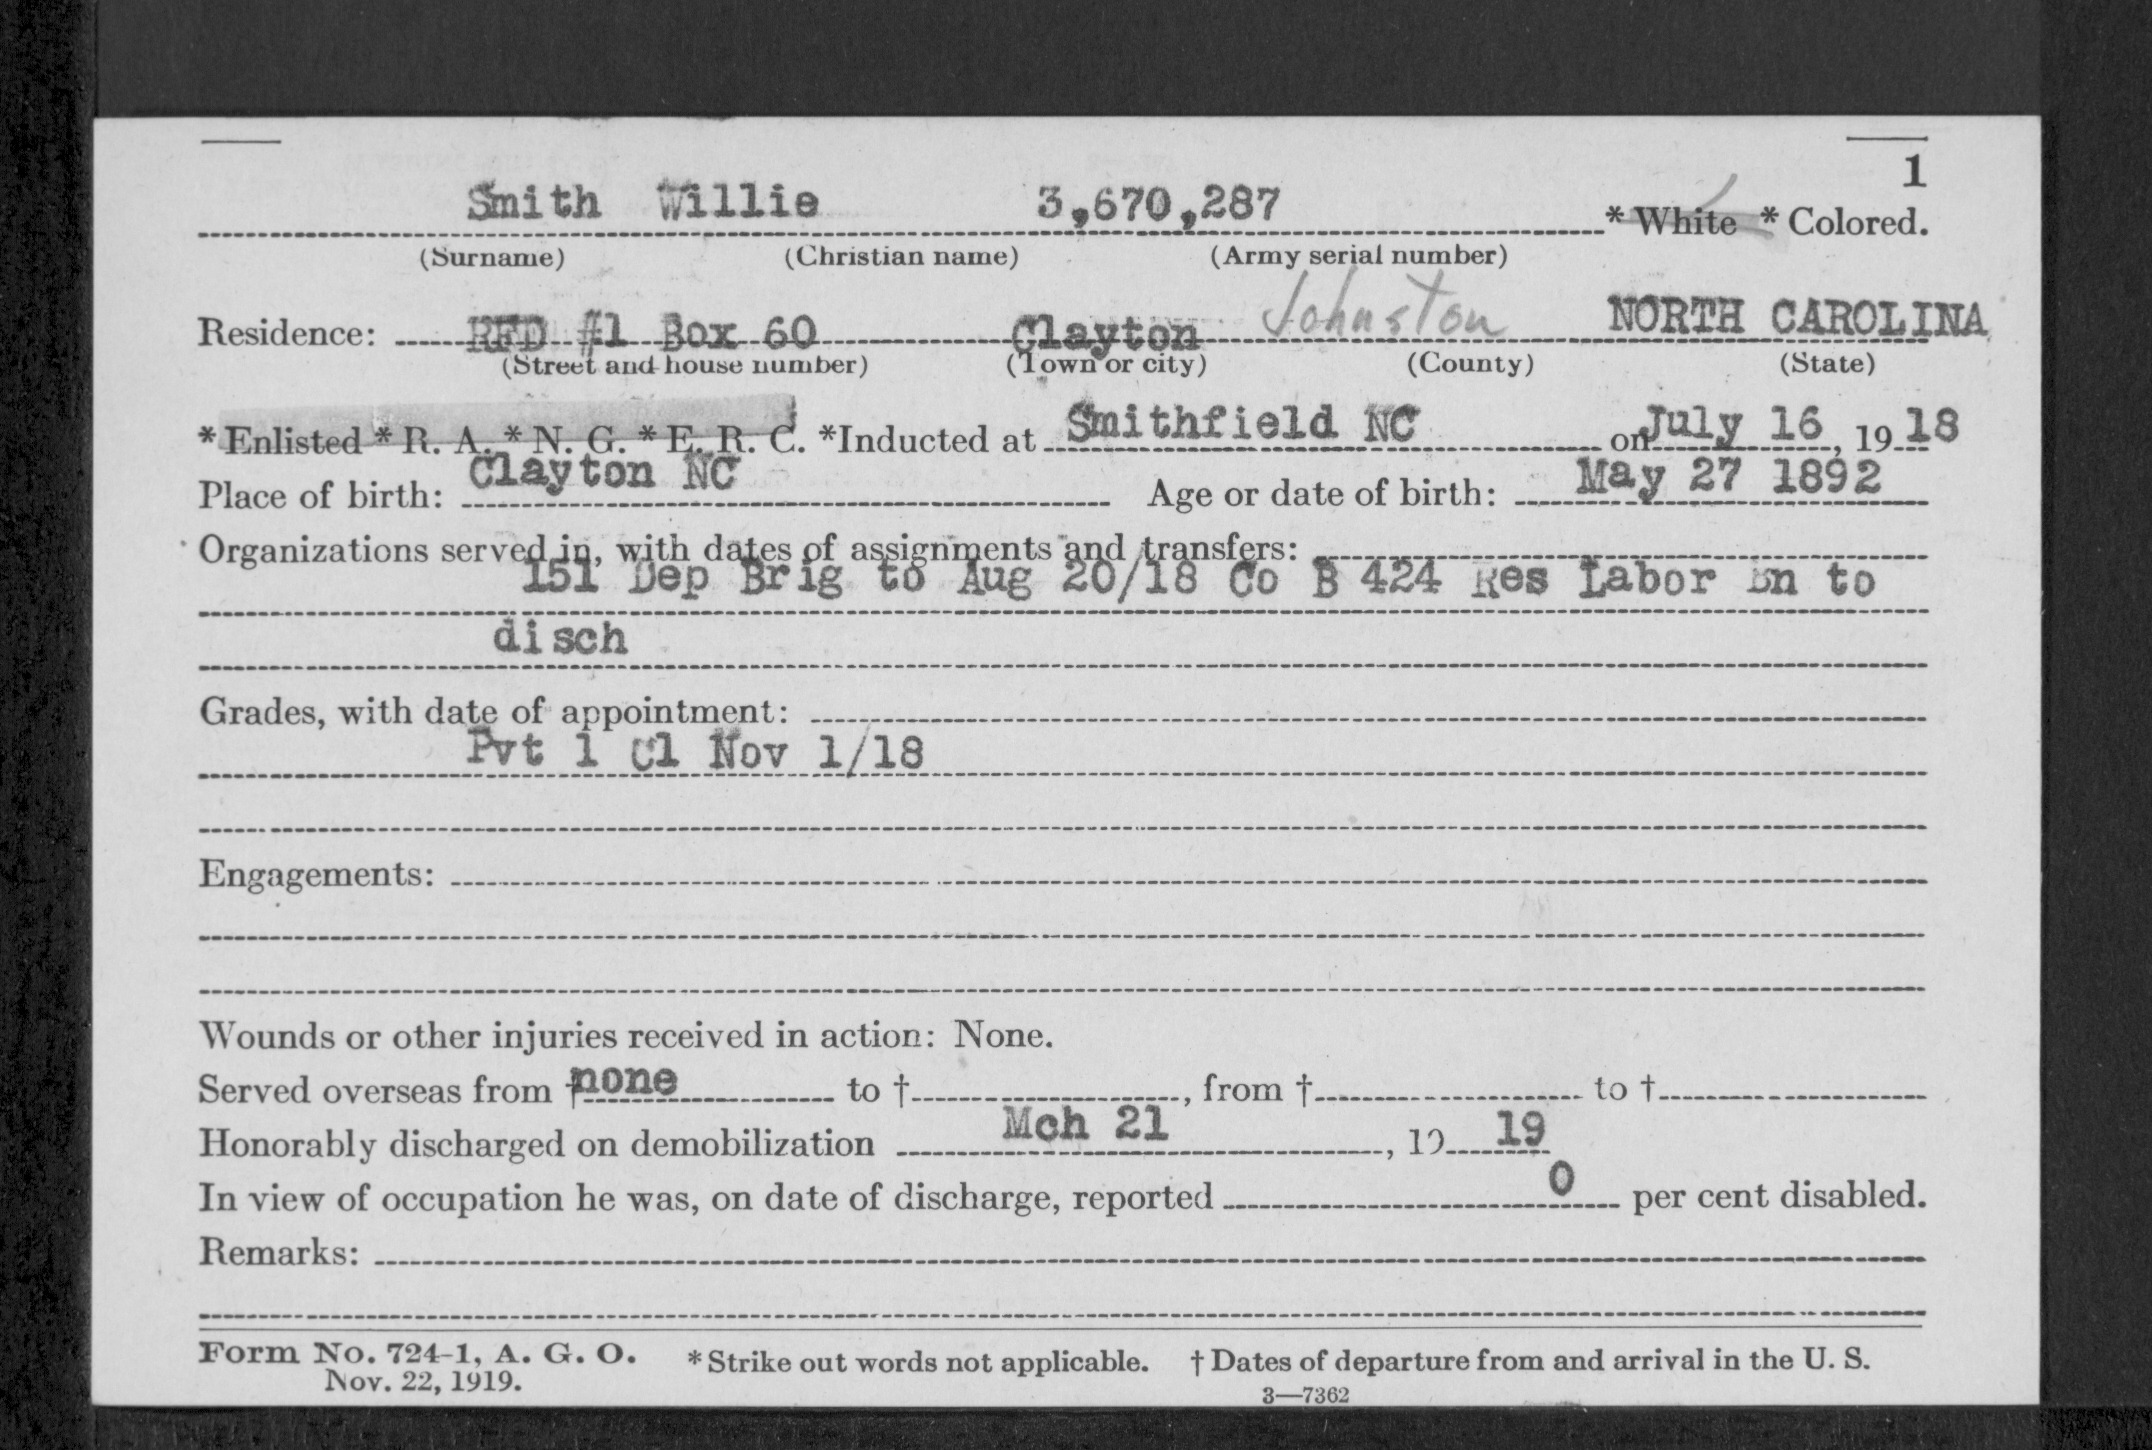 1
Smith Willie 3,670,287 * White * Colored.
(Surname) (Christian name) (Army serial number)
Residence: RFD #1 Box 60 Clayton Johnston NORTH CAROLINA
(Street and house number) (Town or city) (County) (State)
* Enlisted * R. A. * N. G. * E. R. C. *Inducted at Smithfield NC on July 16, 19 18
Place of birth: Clayton NC Age or date of birth: May 27 1892
Organizations served in, with dates of assignments and transfers:
151 Dep Brig to Aug 20/18 Co B 424 Res Labor Bn to
disch
Grades, with date of appointment:
Pvt 1 Cl Nov 1/18
Engagements:
Wounds or other injuries received in action: None.
Served overseas from † none to †, from † to †
Honorably discharged on demobilization Mch 21, 19 19
In view of occupation he was, on date of discharge, reported 0 per cent disabled.
Remarks:
Form No. 724-1, A. G. O. * Strike out words not applicable. † Dates of departure from and arrival in the U. S.
Nov. 22, 1919.
3—7362